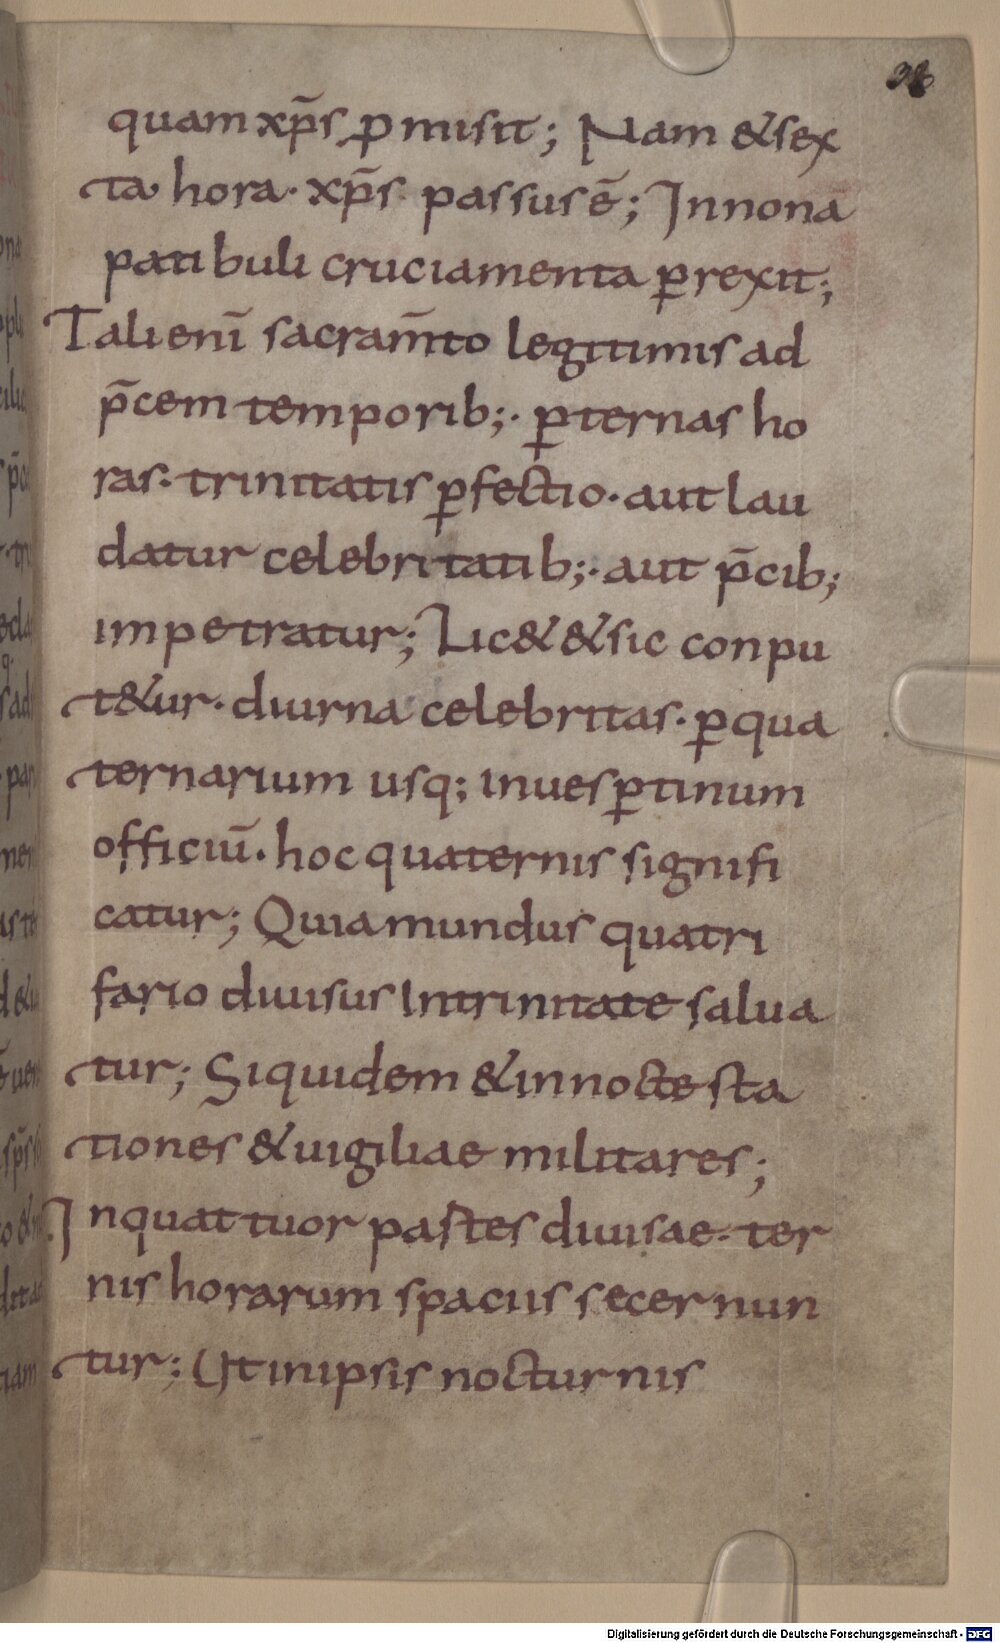 38
quam xp̄s ꝓmisit; Nam & sex
ta hora· xp̄s passus ē; In nona
patibuli cruciamenta ꝑrexit;
Tali eni̅ sacram̅to legitimis ad
p̄cem temporib;· ꝑ ternas ho
ras· trinitatis ꝑfectio· aut lau
datur celebritatib;· aut p̄cib;
impetratur; Lic& & sic conpu
t&ur· diurna celebritas· ꝑ qua
ternarium usq; in uesꝑtinum
officiu̅· hoc quaternis signifi
catur; Quia mundus quatri
fario diuisus In trinitate salua
tur; Siquidem & in nocte sta
tiones & uigiliae militares;
In quattuor pastes diuisae· ter
nis horarum spaciis secernun
tur; Ut in ipsis nocturnis
Digitalisierung gefördert durch die Deutsche Forschungsgemeinschaft - DFG